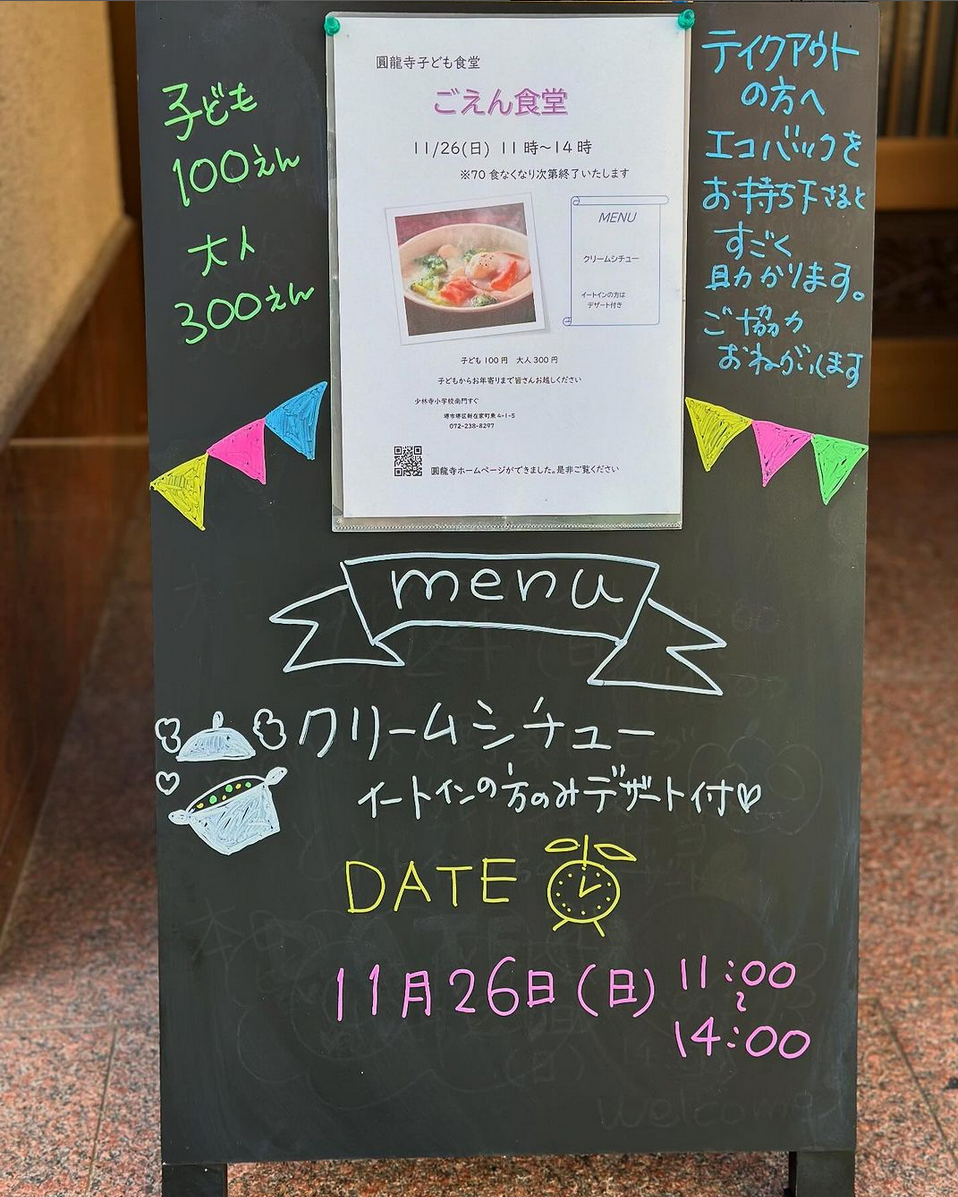 子ども
100えん
大人
300えん
圓龍寺子ども食堂
ごえん食堂
11/26(日) 11時〜14時
※70食なくなり次第終了いたします
MENU
クリームシチュー
イートインの方は
デザート付き
子ども100円 大人300円
子どもからお年寄りまで皆さんお越しください
少林寺小学校南門すぐ
堺市堺区新在家町東4-1-5
072-238-8297
圓龍寺ホームページができました。是非ご覧ください
テイクアウト
の方へ
エコバックを
お持ち下さると
すごく
助かります。
ご協力
おねがいします
menu
クリームシチュー
イートインの方のみデザート付♡
DATE
11月26日(日) 11:00
〜
14:00
welcome